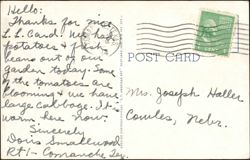 Hello:
Thanks for nice
L.L. Card. We had
potatoes & fresh
beans out of our
garden today. Some
of the tomatoes are
blooming & we have
large cabbage. It
warm here now.
Sincerely
Doris Smallwood
Rt 1 - Comanche Tex.
POST CARD
Mrs. Joseph Haller
Cowles, Nebr.